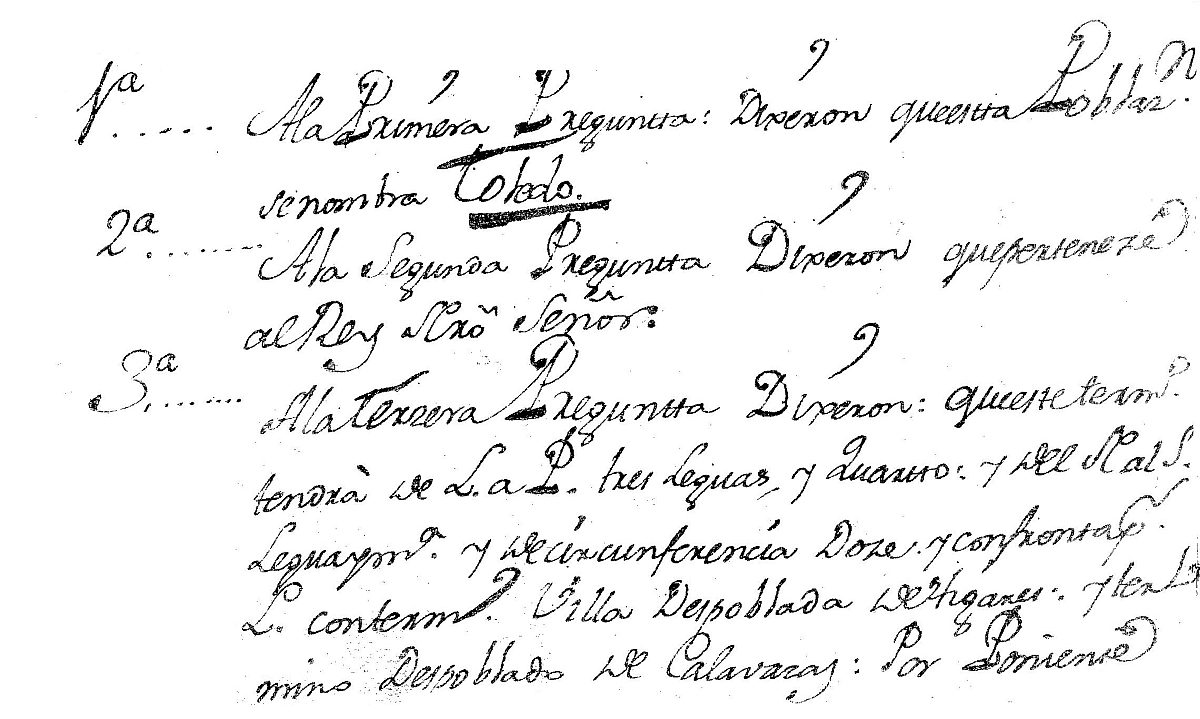 1ª..... Ala Primera Preguntta: Dixeron queestta Poblaz.n
senombra Toledo.
2ª........ Ala Segunda Preguntta Dixeron queperteneze
al Rey Nrô Señor:
3ª....... Ala Terzera Preguntta Dixeron: queestetermº.
tendrà de L. a P. tres Leguas, y Quartto: y del N al S.
Leguaymª. y decircunferencia Doze. y confronta pr.
L. conterm.º Villa Despoblada de Higares:. yter
mino Despoblado de Calavazas: Por Poniente